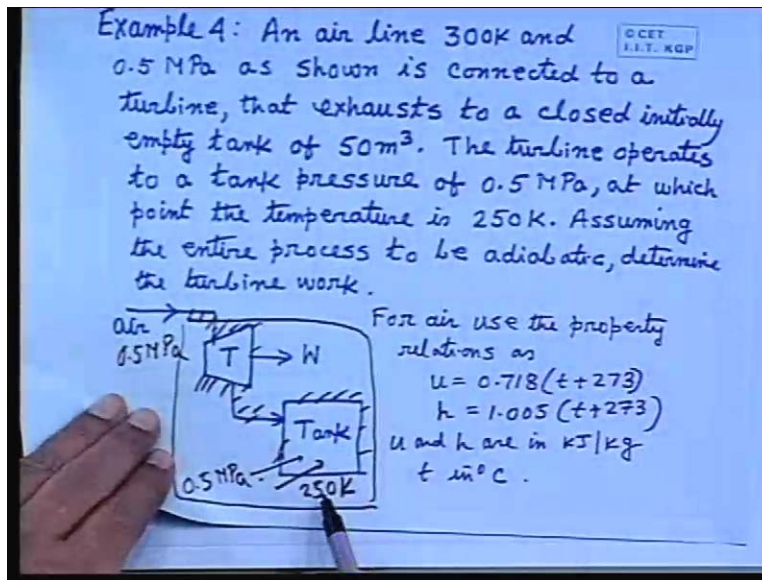 Example 4: An air line 300K and
© CET
I.I.T. KGP
0.5 MPa as shown is connected to a
turbine, that exhausts to a closed initially
empty tank of 50m³. The turbine operates
to a tank pressure of 0.5 MPa, at which
point the temperature is 250K. Assuming
the entire process to be adiabatic, determine
the turbine work.
air
0.5 MPa
T
W
Tank
0.5 MPa
250K
For air use the property
relations as
u = 0.718(t+273)
h = 1.005(t+273)
u and h are in kJ/kg
t in °C.